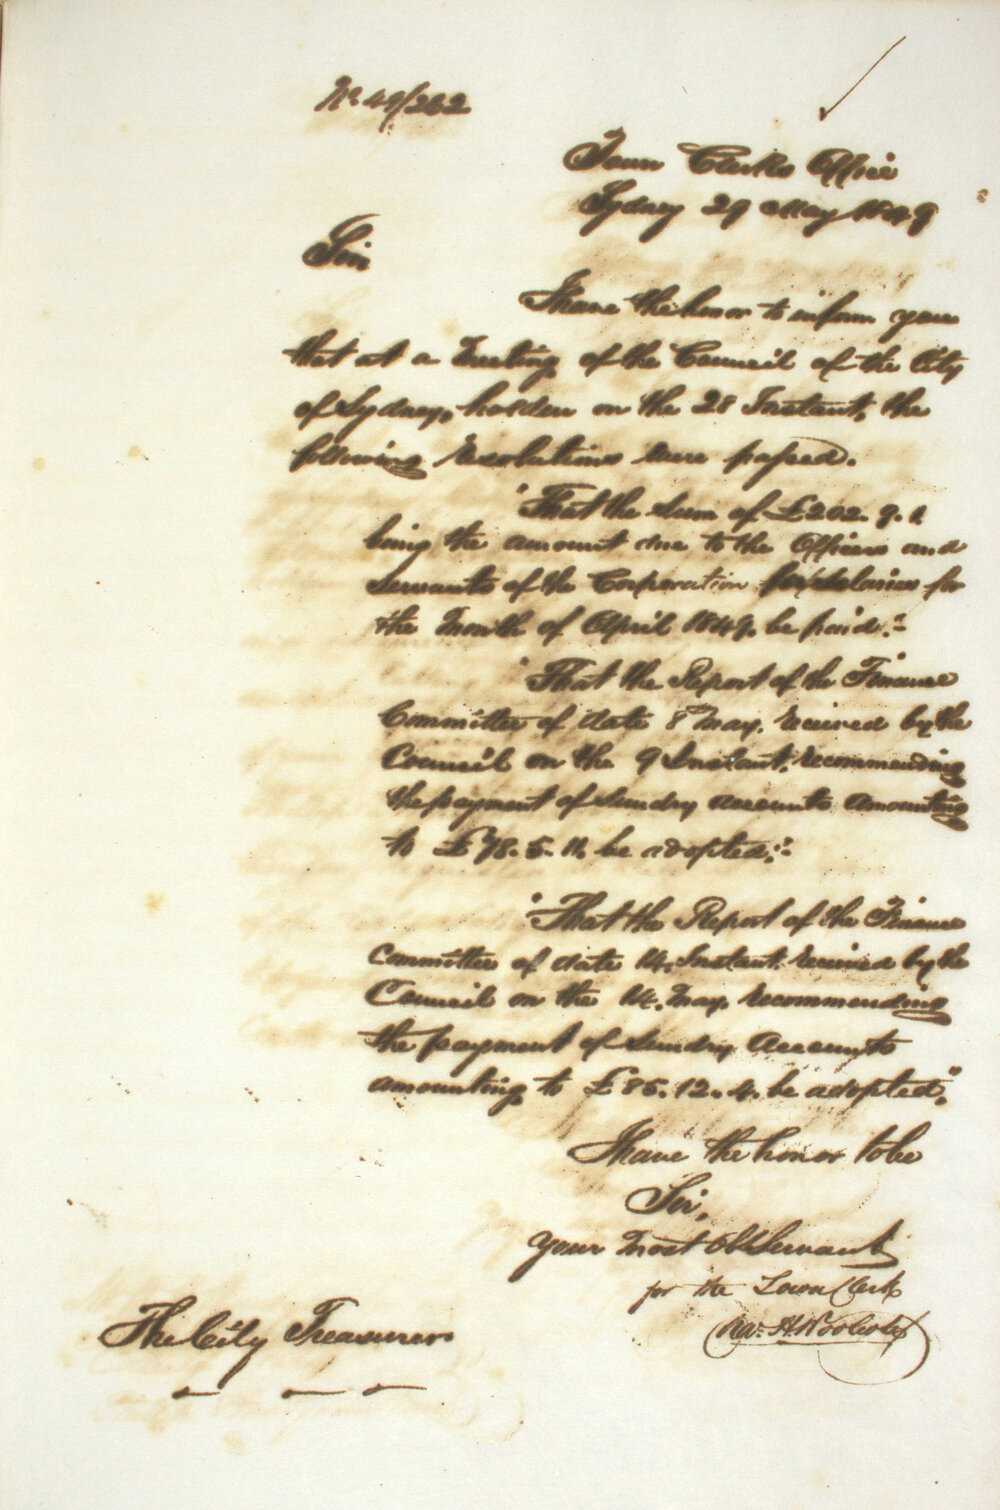 No 49/262
Town Clerks Office
Sydney 29 May 1849
Sir
I have the honor to inform you
that at a Meeting of the Council of the City
of Sydney, holden on the 28 Instant, the
following Resolutions were passed.
"That the Sum of £202. 9. 1
being the amount due to the Officers and
Servants of the Corporation for Salaries for
the Month of April 1849. be paid."
"That the Report of the Finance
Committee of date 8 May, received by the
Council on the 9 Instant, recommending
the payment of Sundry accounts amounting
to £78. 5. 11. be adopted."
"That the Report of the Finance
Committee of date 14. Instant. received by the
Council on the 14. May, recommending
the payment of Sundry Accounts
amounting to £85. 12. 4. be adopted."
I have the honor to be
Sir,
your Most Ob Servant
for the Town Clerk
The City Treasurer